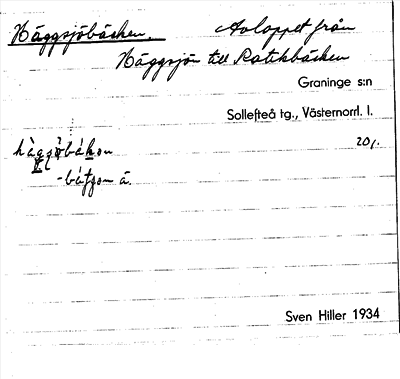 Häggsjöbäcken. Avloppet från
Häggsjön till Rotikbäcken
Graninge s:n
Sollefteå tg., Västernorrl. l.
20/.
Sven Hiller 1934